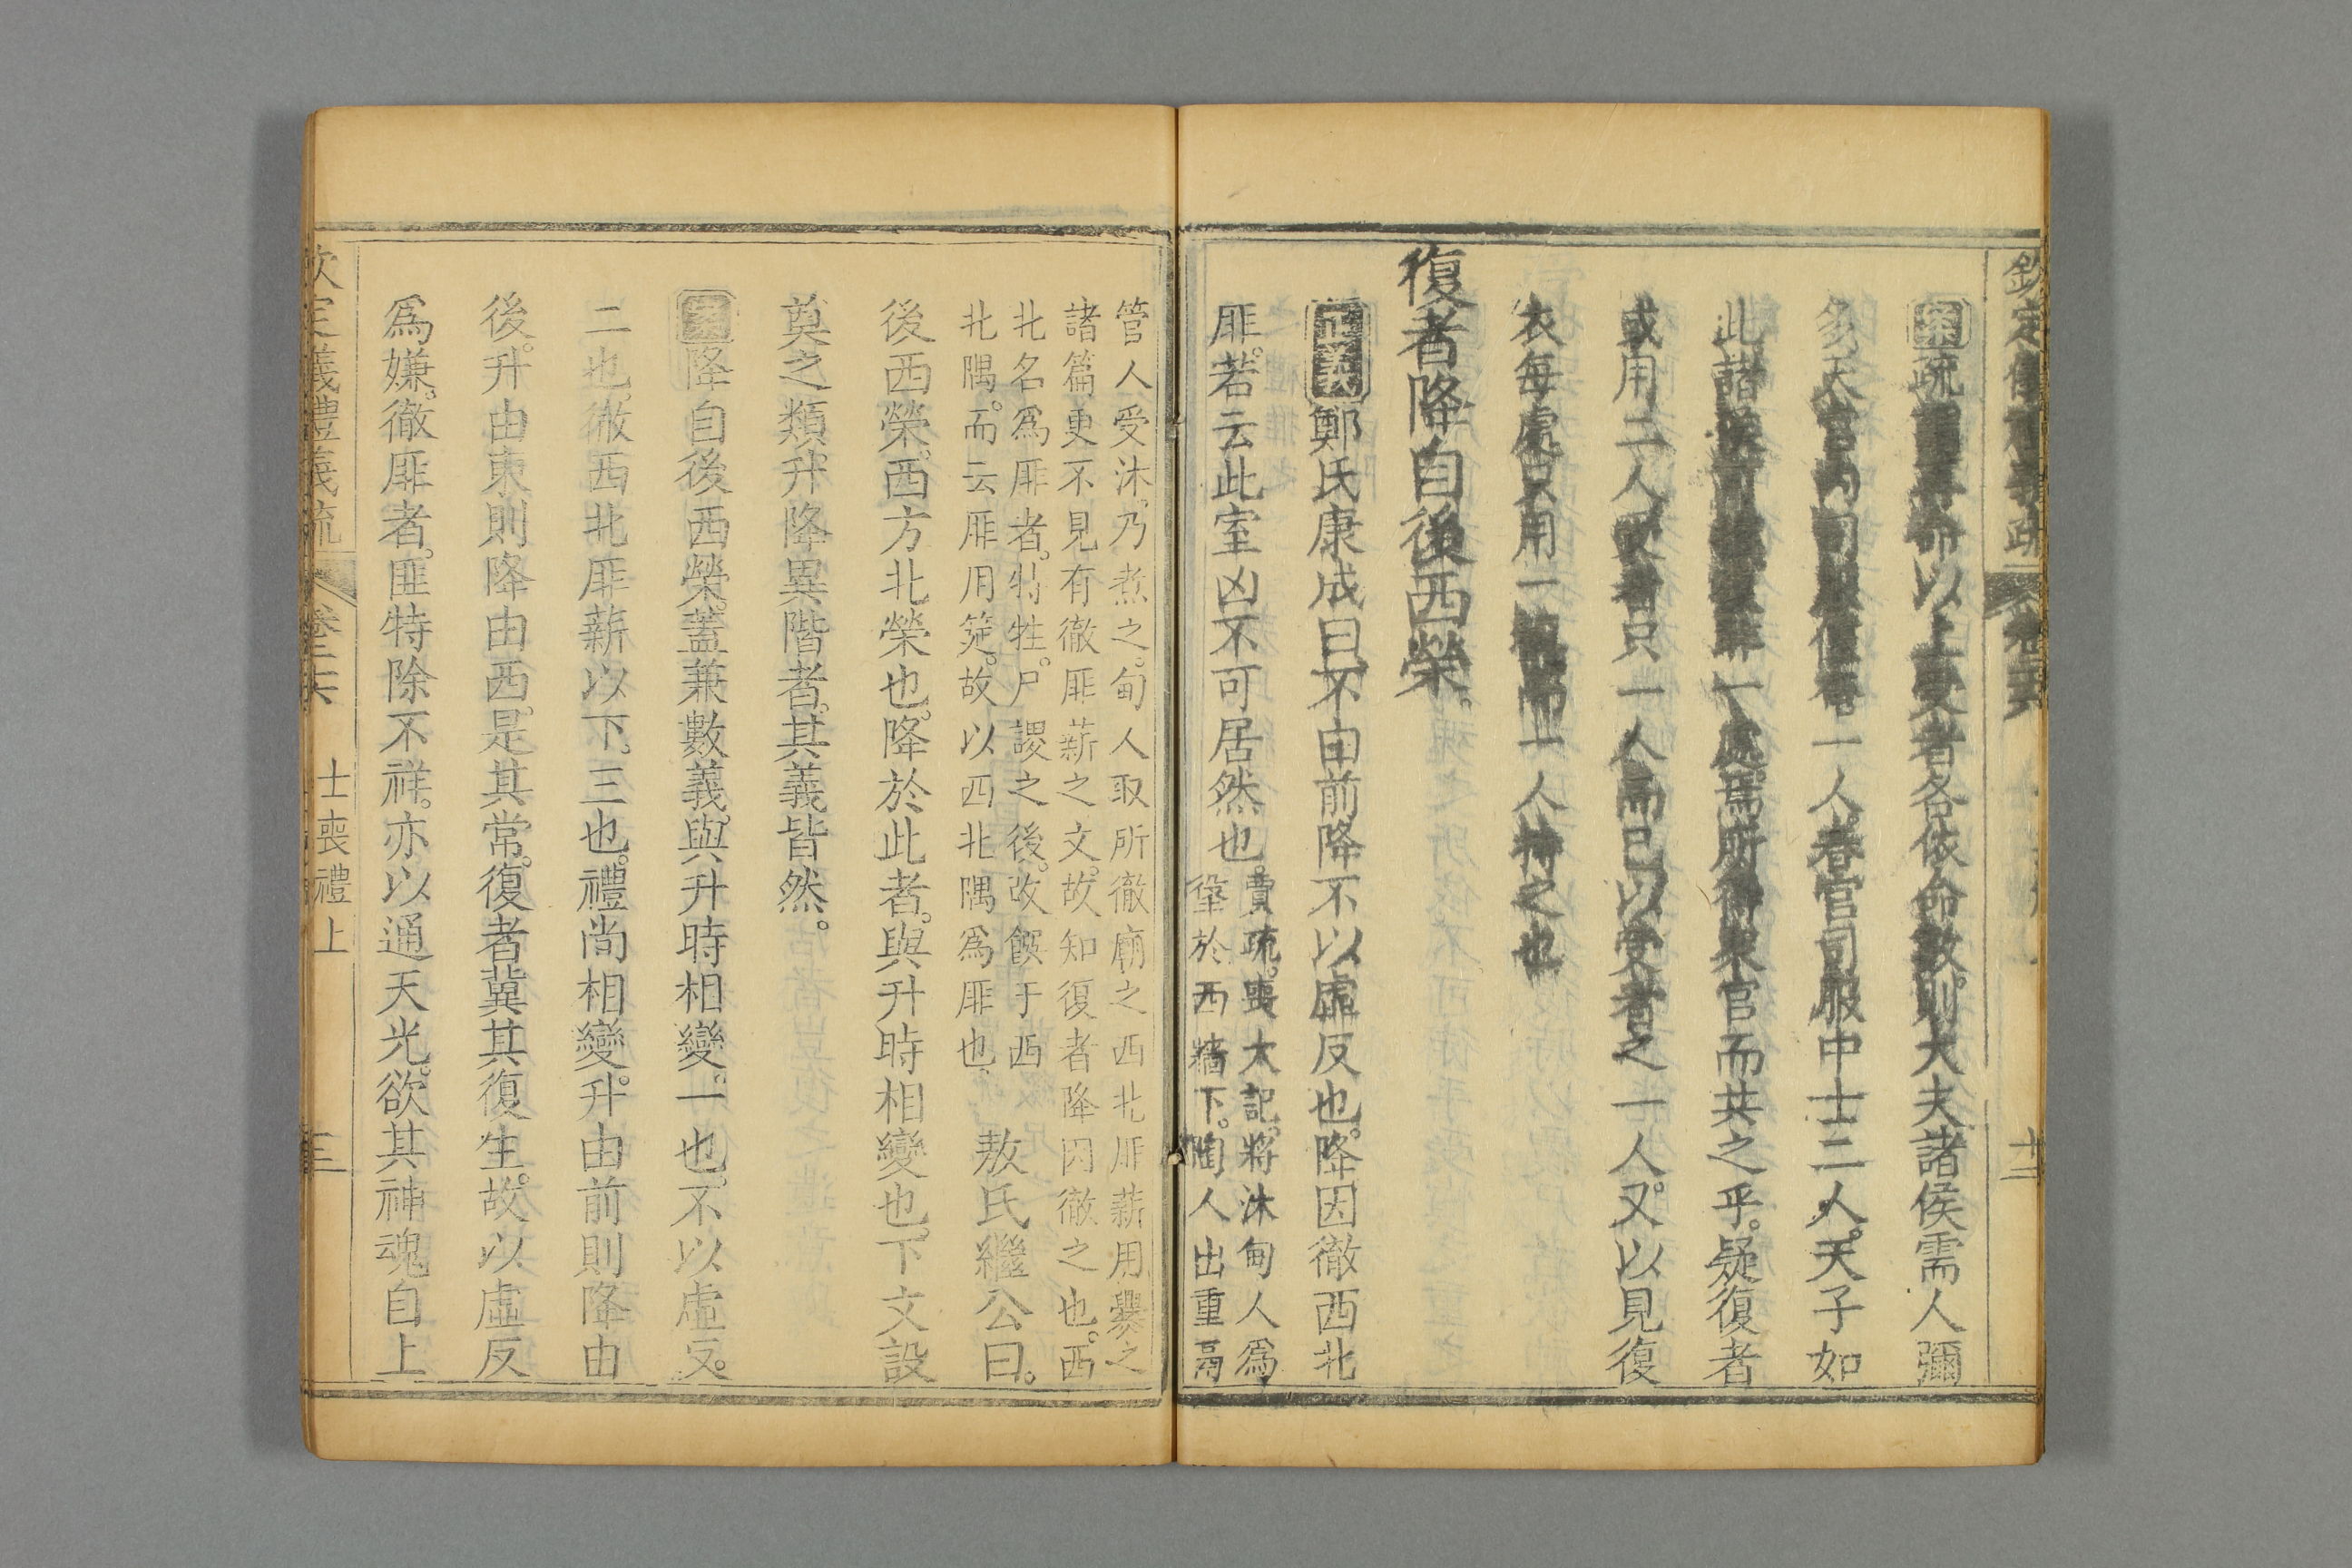 欽定儀禮義疏 卷二十六 十二
案疏謂再命以上受者各依命數則大夫諸侯需人彌
多天官內司服僅奄一人春官司服中士二人天子如
此諸侯可推復非一處焉所得眾官而共之乎疑復者
或用二人受者只一人而已以受者之一人又以見復
衣每處只用一領而一人持之也
復者降自後西榮
正義鄭氏康成曰不由前降不以虛反也降因徹西北
厞若云此室凶不可居然也賈疏喪大記將沐甸人為
垼於西牆下陶人出重鬲
管人受沐乃煮之甸人取所徹廟之西北厞薪用爨之
諸篇更不見有徹厞薪之文故知復者降因徹之也西
北名為厞者特牲尸謖之後改饌于西
北隅而云厞用筵故以西北隅為厞也 敖氏繼公曰
後西榮西方北榮也降於此者與升時相變也下文設
奠之類升降異階者其義皆然
案降自後西榮蓋兼數義與升時相變一也不以虛反
二也徹西北厞薪以下三也禮尚相變升由前則降由
後升由東則降由西是其常復者冀其復生故以虛反
為嫌徹厞者匪特除不祥亦以通天光欲其神魂自上
欽定儀禮義疏 卷二十六 士喪禮上 三